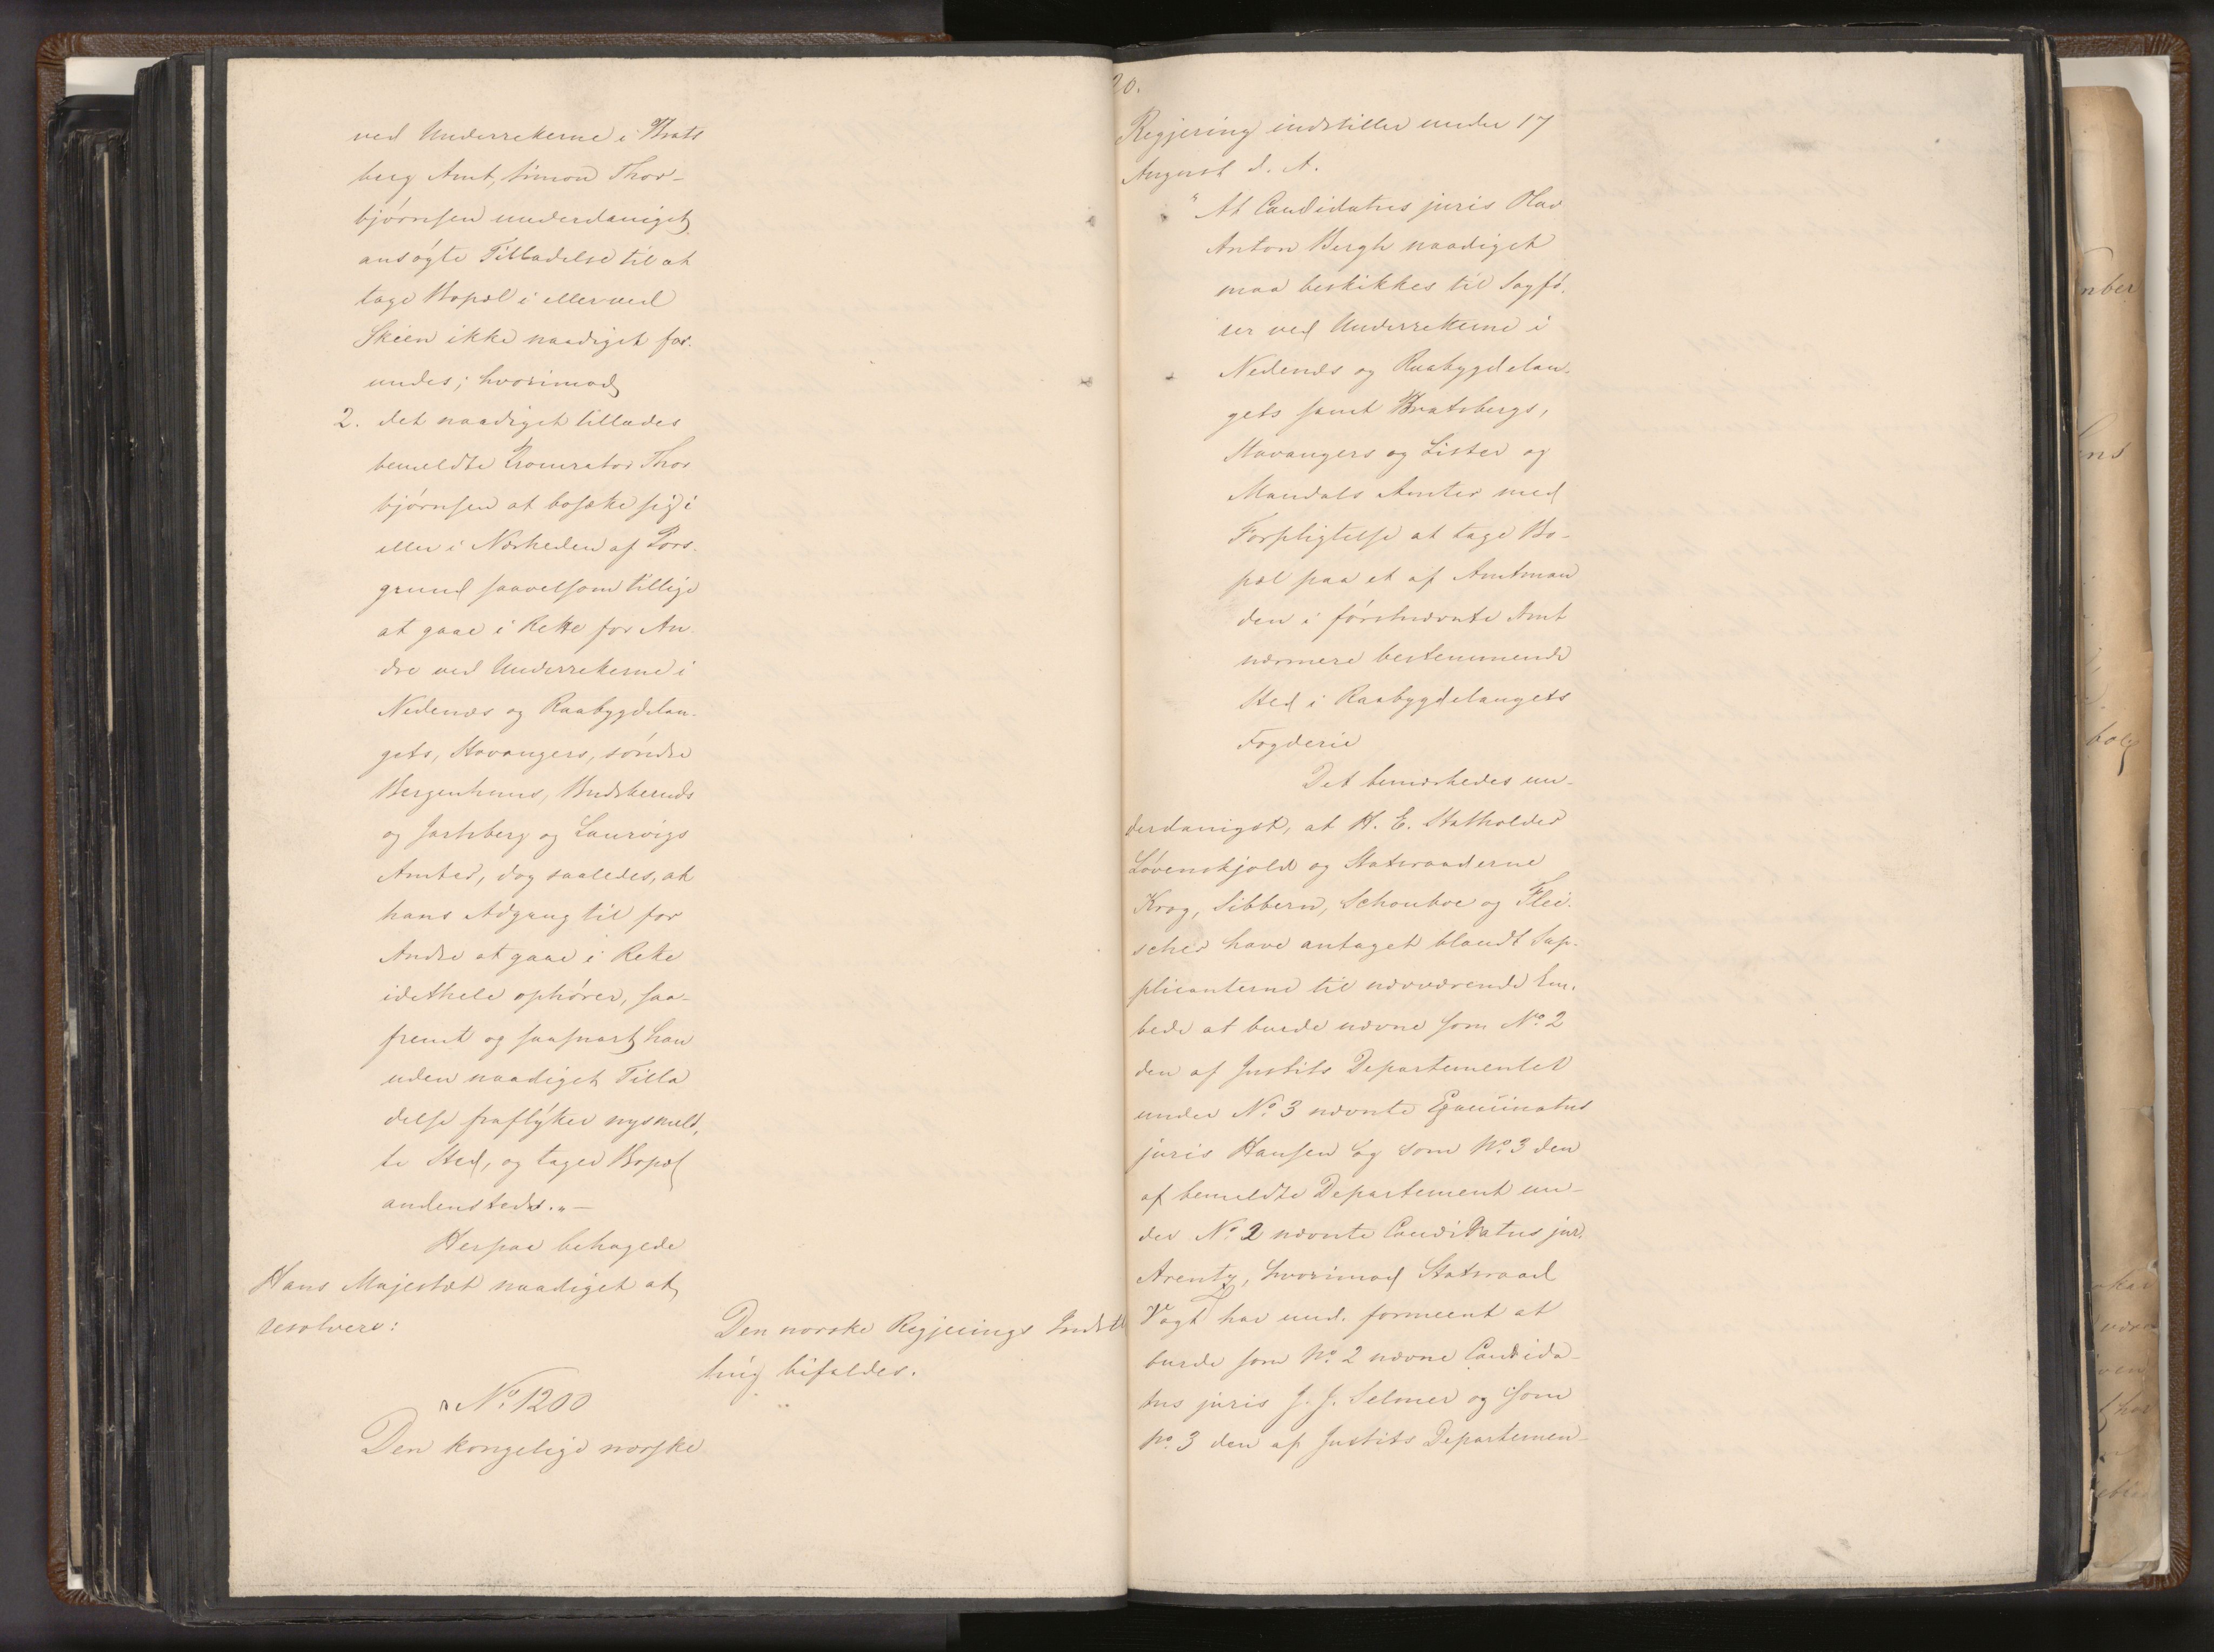 ved Underretterne i Brats
berg Amt, Simon Thor-
bjørnsen underdanigst
ansøgte Tilladelse til at
tage Bopæl i eller ved
Skien ikke naadigst for-
undes; hvorimod
2. det naadigst tillades
bemeldte Procurator Thor
bjørnsen at bosætte sig i
eller i Nærheden af Pors-
grund saavelsom tillige
at gaae i Rette for An-
dre ved Underretterne i
Nedenæs og Raabygdelau-
gets, Stavangers, søndre
Bergenhuus, Budskeruds
og Jarlsberg og Laurvigs
Amter, dog saaledes, at
hans Adgang til for
Andre at gaae i Rette
idethele ophører, saa-
fremt og saasnart han
uden naadigst Tilla
delse fraflytter nysmeld-
te Sted, og tager Bopæl
andensteds." —
Herpaa behagede
Hans Majestæt naadigst at
resolvere:
Den norske Regjerings Indstil
ling bifaldes.
No 1200
Den kongelige norske
20.
Regjering indstiller under 17
August d. A.
"At Candidatus juris Olav
Anton Bergh naadigst
maa beskikkes til Sagfø-
rer ved Underretterne i
Nedenæs og Raabygdelau-
gets samt Bratsbergs,
Stavangers og Lister og
Mandals Amter med
Forpligtelse at tage Bo-
pæl paa et af Amtman
den i førstnævnte Amt
nærmere bestemmende
Sted i Raabygdelaugets
Fogderie
Det bemærkedes un-
derdanigst, at H. E. Statholder
Løvenskjold og Statsraaderne
Krog, Sibbern, Schouboe og Flei-
scher have antaget blandt Sup-
plicanterne til nærværende Em-
bede at burde nævne som No. 2
den af Justits Departementet
under No. 3 nævnte Examinatus
juris Hansen og som No. 3 den
af bemeldte Departement un-
der No. 2 nævnte Candidatus jur.
Arentz, hvorimod Statsraad
Vogt har und. formeent at
burde som No. 2 nævne Candida-
tus juris J. J. Selmer og som
No. 3 den af Justits Departemen-